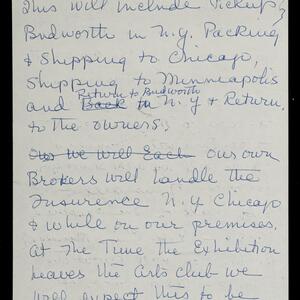 This will include Pickup,
Budworth in N.Y. Packing
& Shipping to Chicago,
Shipping to Minneapolis
Return to Budworth
and Back in N.Y & Return
to the owners.
we will Each our own
Brokers will handle the
Insurence N.Y Chicago
& while on our premises.
At The Time the Exhibition
leaves the Arts club we
will expect this to be